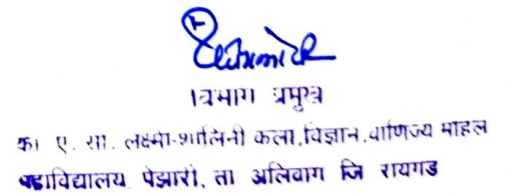 विभाग प्रमुख
को. ए. सो. लक्ष्मी-शालिनी कला,विज्ञान,वाणिज्य महिला
महाविद्यालय, पेझारी, ता अलिबाग जि रायगड